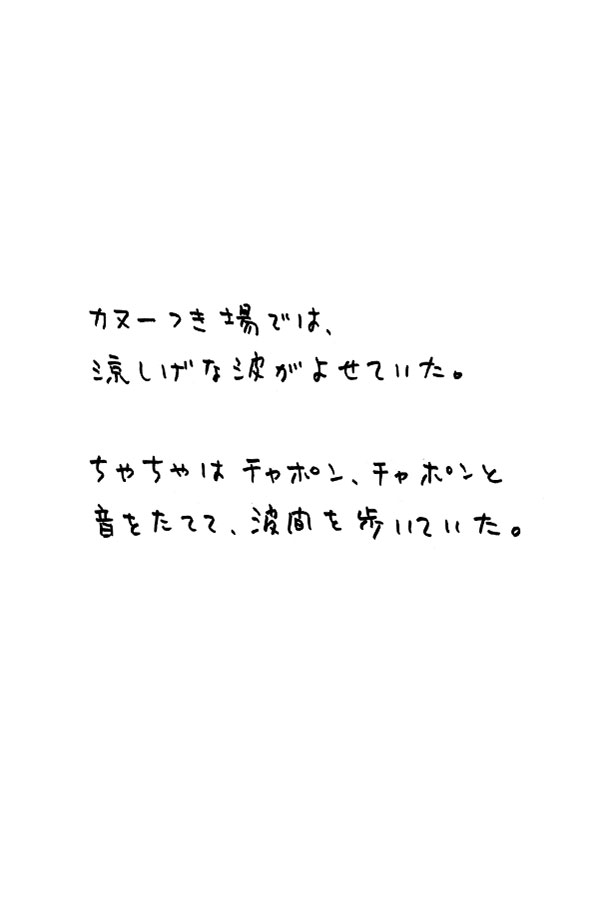 カヌーつき場では、
涼しげな波がよせていた。
ちゃちゃはチャポン、チャポンと
音をたてて、波間を歩いていた。